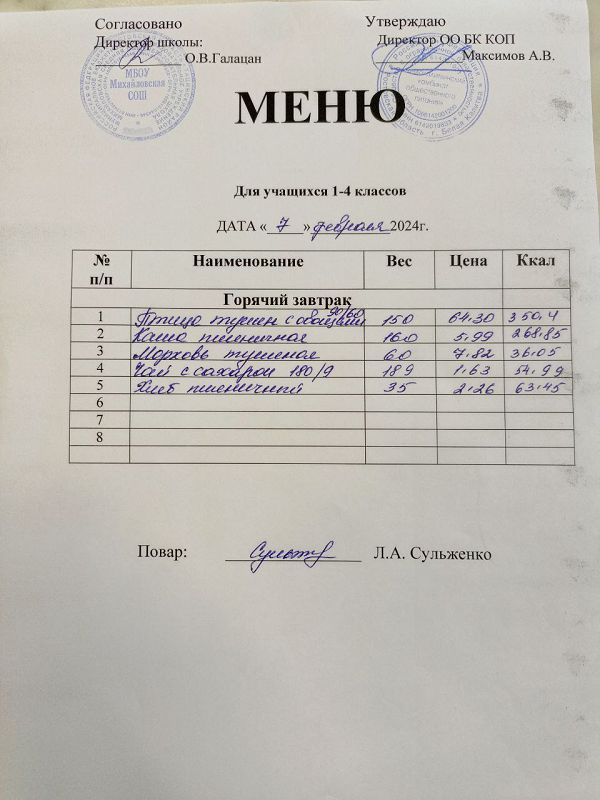 Согласовано Утверждаю
Директор школы: Директор ОО БК КОП
О.В.Галацан Максимов А.В.
МБОУ
Михайловская
СОШ
комбинат
общественного
питания
г. Белая Калитва
МЕНЮ
Для учащихся 1-4 классов
ДАТА « 7 » февраля 2024г.
№ п/п Наименование Вес Цена Ккал
Горячий завтрак
1 Птица тушен с овощами 90/60 150 64.30 350,4
2 Каша пшеничная 160 5,99 268,85
3 Морковь тушеная 60 7.82 36.05
4 Чай с сахаром 180/9 189 1.63 54,99
5 Хлеб пшеничный 35 2.26 63.45
6
7
8
Повар: Л.А. Сульженко